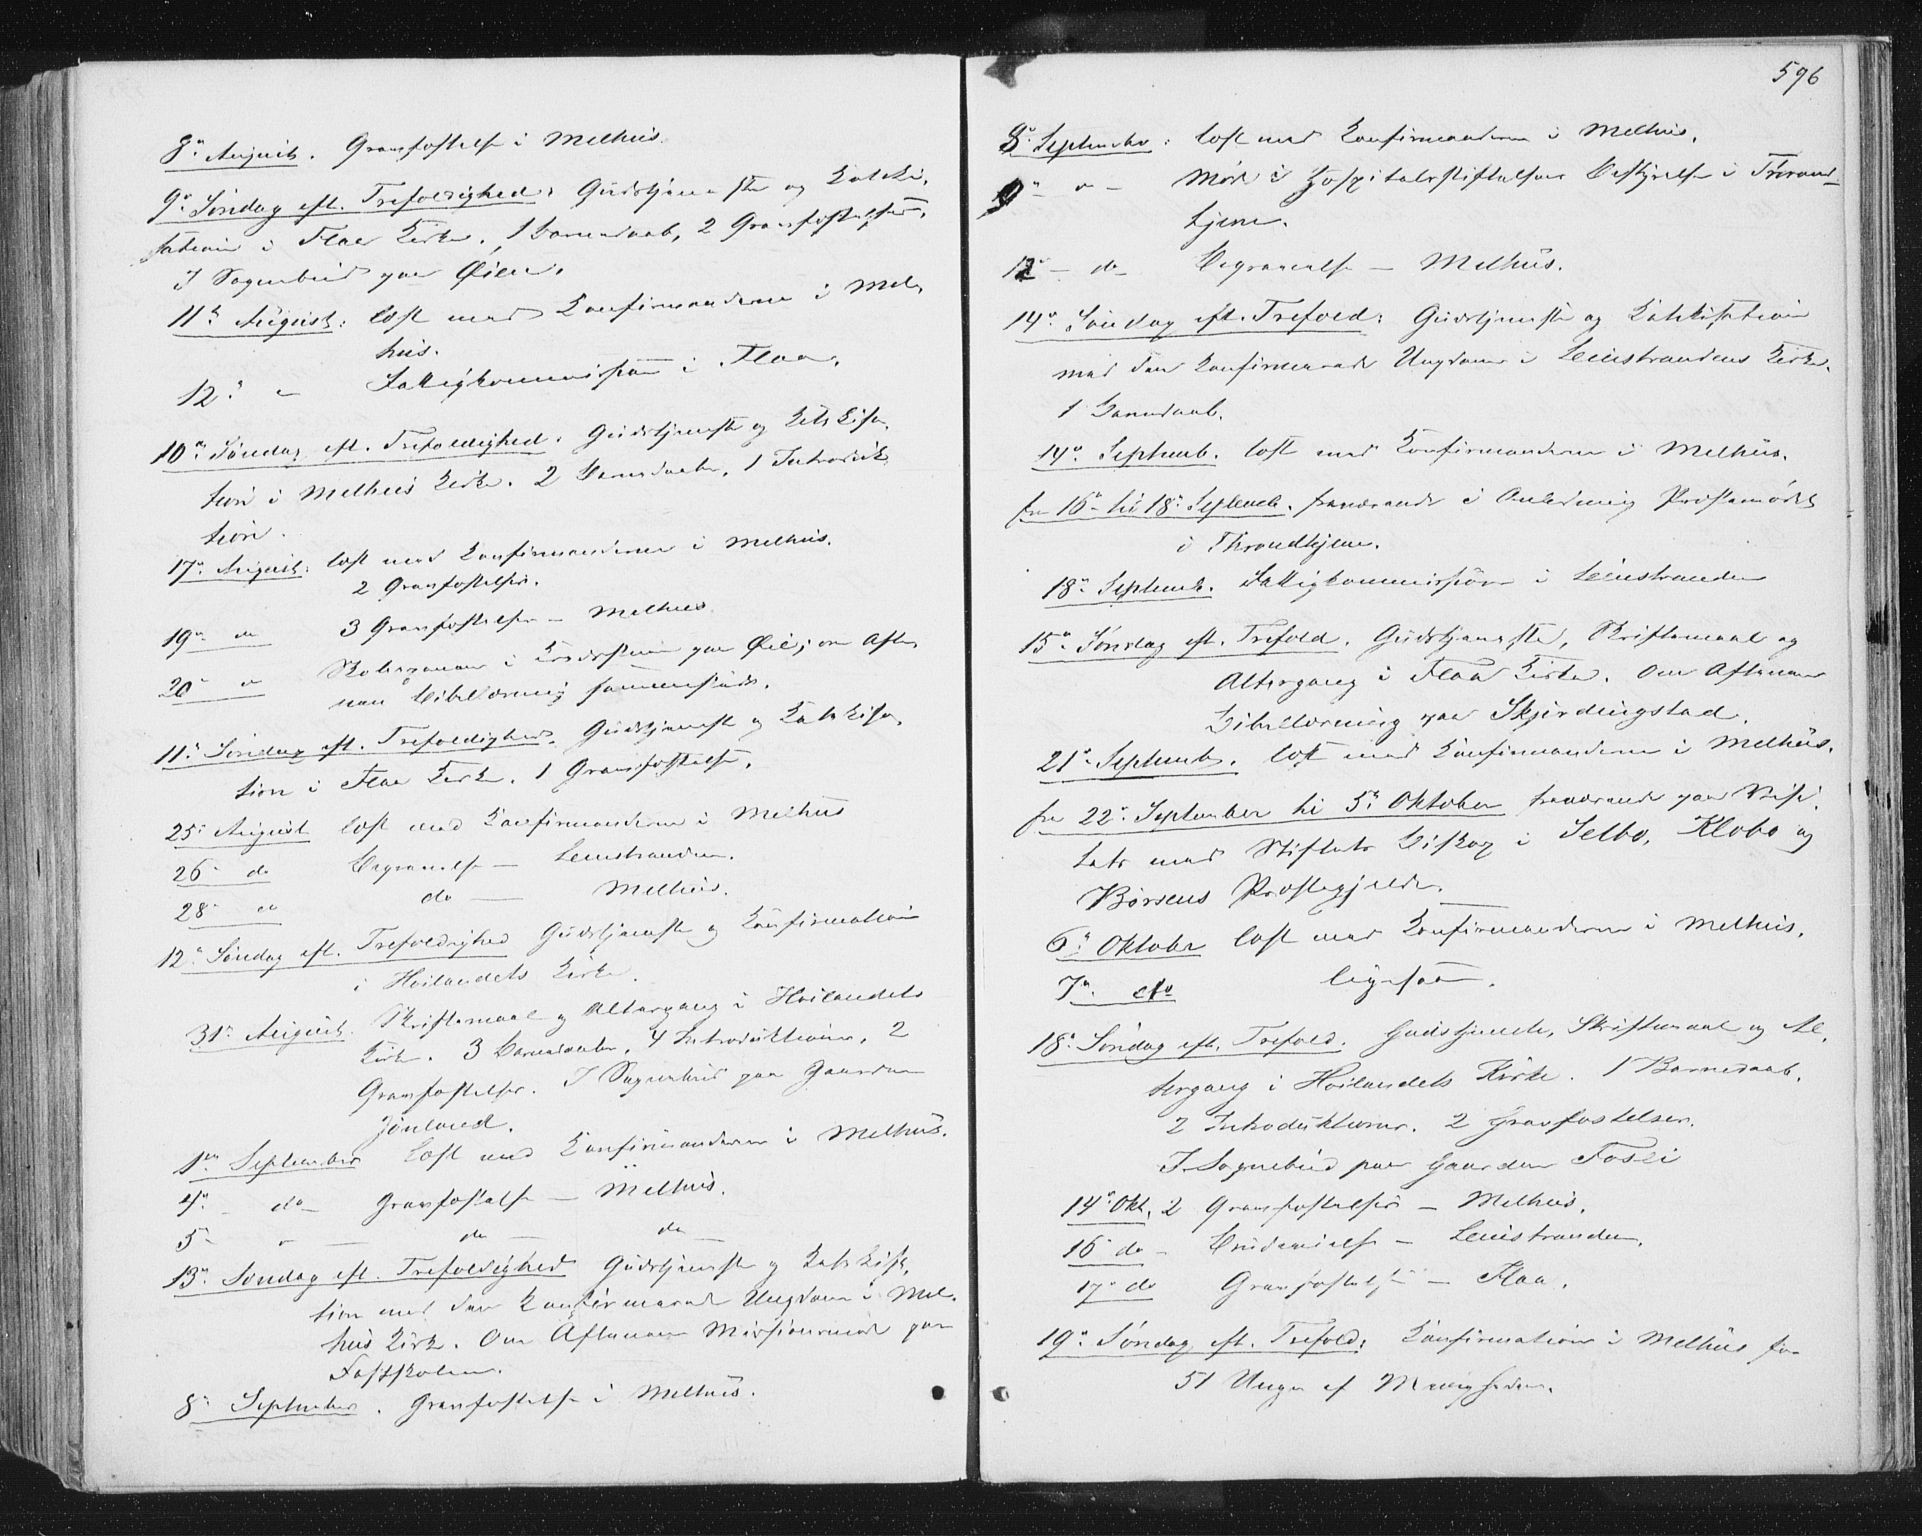 8de August. Gravfæstelse i Melhus.
9de Søndag eft. Trefoldighed: Gudstjeneste og Kateki-
sation i Flaa Kirke. 1 Barnedaab, 2 Gravfæstelser.
I Sognebud paa Øien.
11te August: læst med Konfirmanderne i Mel-
hus.
12te " Fattigkommission i Flaa.
10de Søndag eft. Trefoldighed. Gudstjeneste og Katekisa-
tion i Melhus Kirke. 2 Barnedaabe. 1 Introduk-
tion.
17de August: læst med Konfirmanderne i Melhus.
2 Gravfæstelser.
19de do 3 Gravfæstelser – Melhus
20de do i Kredsskolen paa Øie; om Afte-
nen Bibellæsning sammesteds.
11te Søndag eft. Trefoldighed. Gudstjeneste og Katekisa-
tion i Flaa Kirke. 1 Gravfæstelse.
25de August læst med Konfirmanderne i Melhus
26de do Begravelse – Leinstranden.
28de do do – Melhus.
12te Søndag eft. Trefoldighed Gudstjeneste og Konfirmation
i Høilandets Kirke.
31te August. Skriftemaal og Altergang i Høilandets
Kirke. 3 Barnedaabe, 4 Introduktioner, 2
Gravfæstelser. I Sognebud paa Gaarden
1ste September Læst med Konfirmanderne i Melhus.
4de – do – Gravfæstelse – Melhus.
5te – " – do – do –
13de Søndag eft. Trefoldighed Gudstjeneste og Katekisa-
tion med den konfirmerede Ungdom i Mel-
hus Kirke. Om Aftenen Missionsmøde paa
Fastskolen.
8de September. Gravfæstelse i Melhus.
596
8de September: læst med Konfirmanderne i Melhus.
9de – " – Møde i Hospitalsstiftelsens Bestyrelse i Thrond-
hjem.
12te – do – Begravelse – Melhus.
14de Søndag eft. Trefold: Gudstjeneste og Katekisation
med den konfirmerede Ungdom i Leinstrandens Kirke.
1 Barnedaab.
14de Septemb. læst med Konfirmanderne i Melhus.
fra 16de til 18de Septemb. fraværende i Anledning Præstemødet
i Throndhjem.
18de Septemb. Fattigkommission i Leinstranden
15de Søndag eft. Trefold. Gudstjeneste, Skriftemaal og
Altergang i Flaa Kirke. Om Aftenen
Bibellæsning paa Skjerdingstad.
21de Septemb. læst med Konfirmanderne i Melhus.
fra 22de September til 5te Oktober fraværende paa Visi-
tats med Stiftets Biskop i Selbo, Klæbo og
Børsens Præstegjelde.
6te Oktober læst med Konfirmanderne i Melhus.
7de do ligesaa.
18de Søndag eft. Trefold. Gudstjeneste, Skriftemaal og Al-
tergang i Høilandets Kirke. 1 Barnedaab.
2 Introduktioner. 2 Gravfæstelser.
I Sognebud paa Gaarden
14de Okt. 2 Gravfæstelser – Melhus.
16de do – – Leinstranden.
17de do Gravfæstelse – Flaa.
19de Søndag eft. Trefold: Konfirmation i Melhus for
51 Unge af Menigheden.